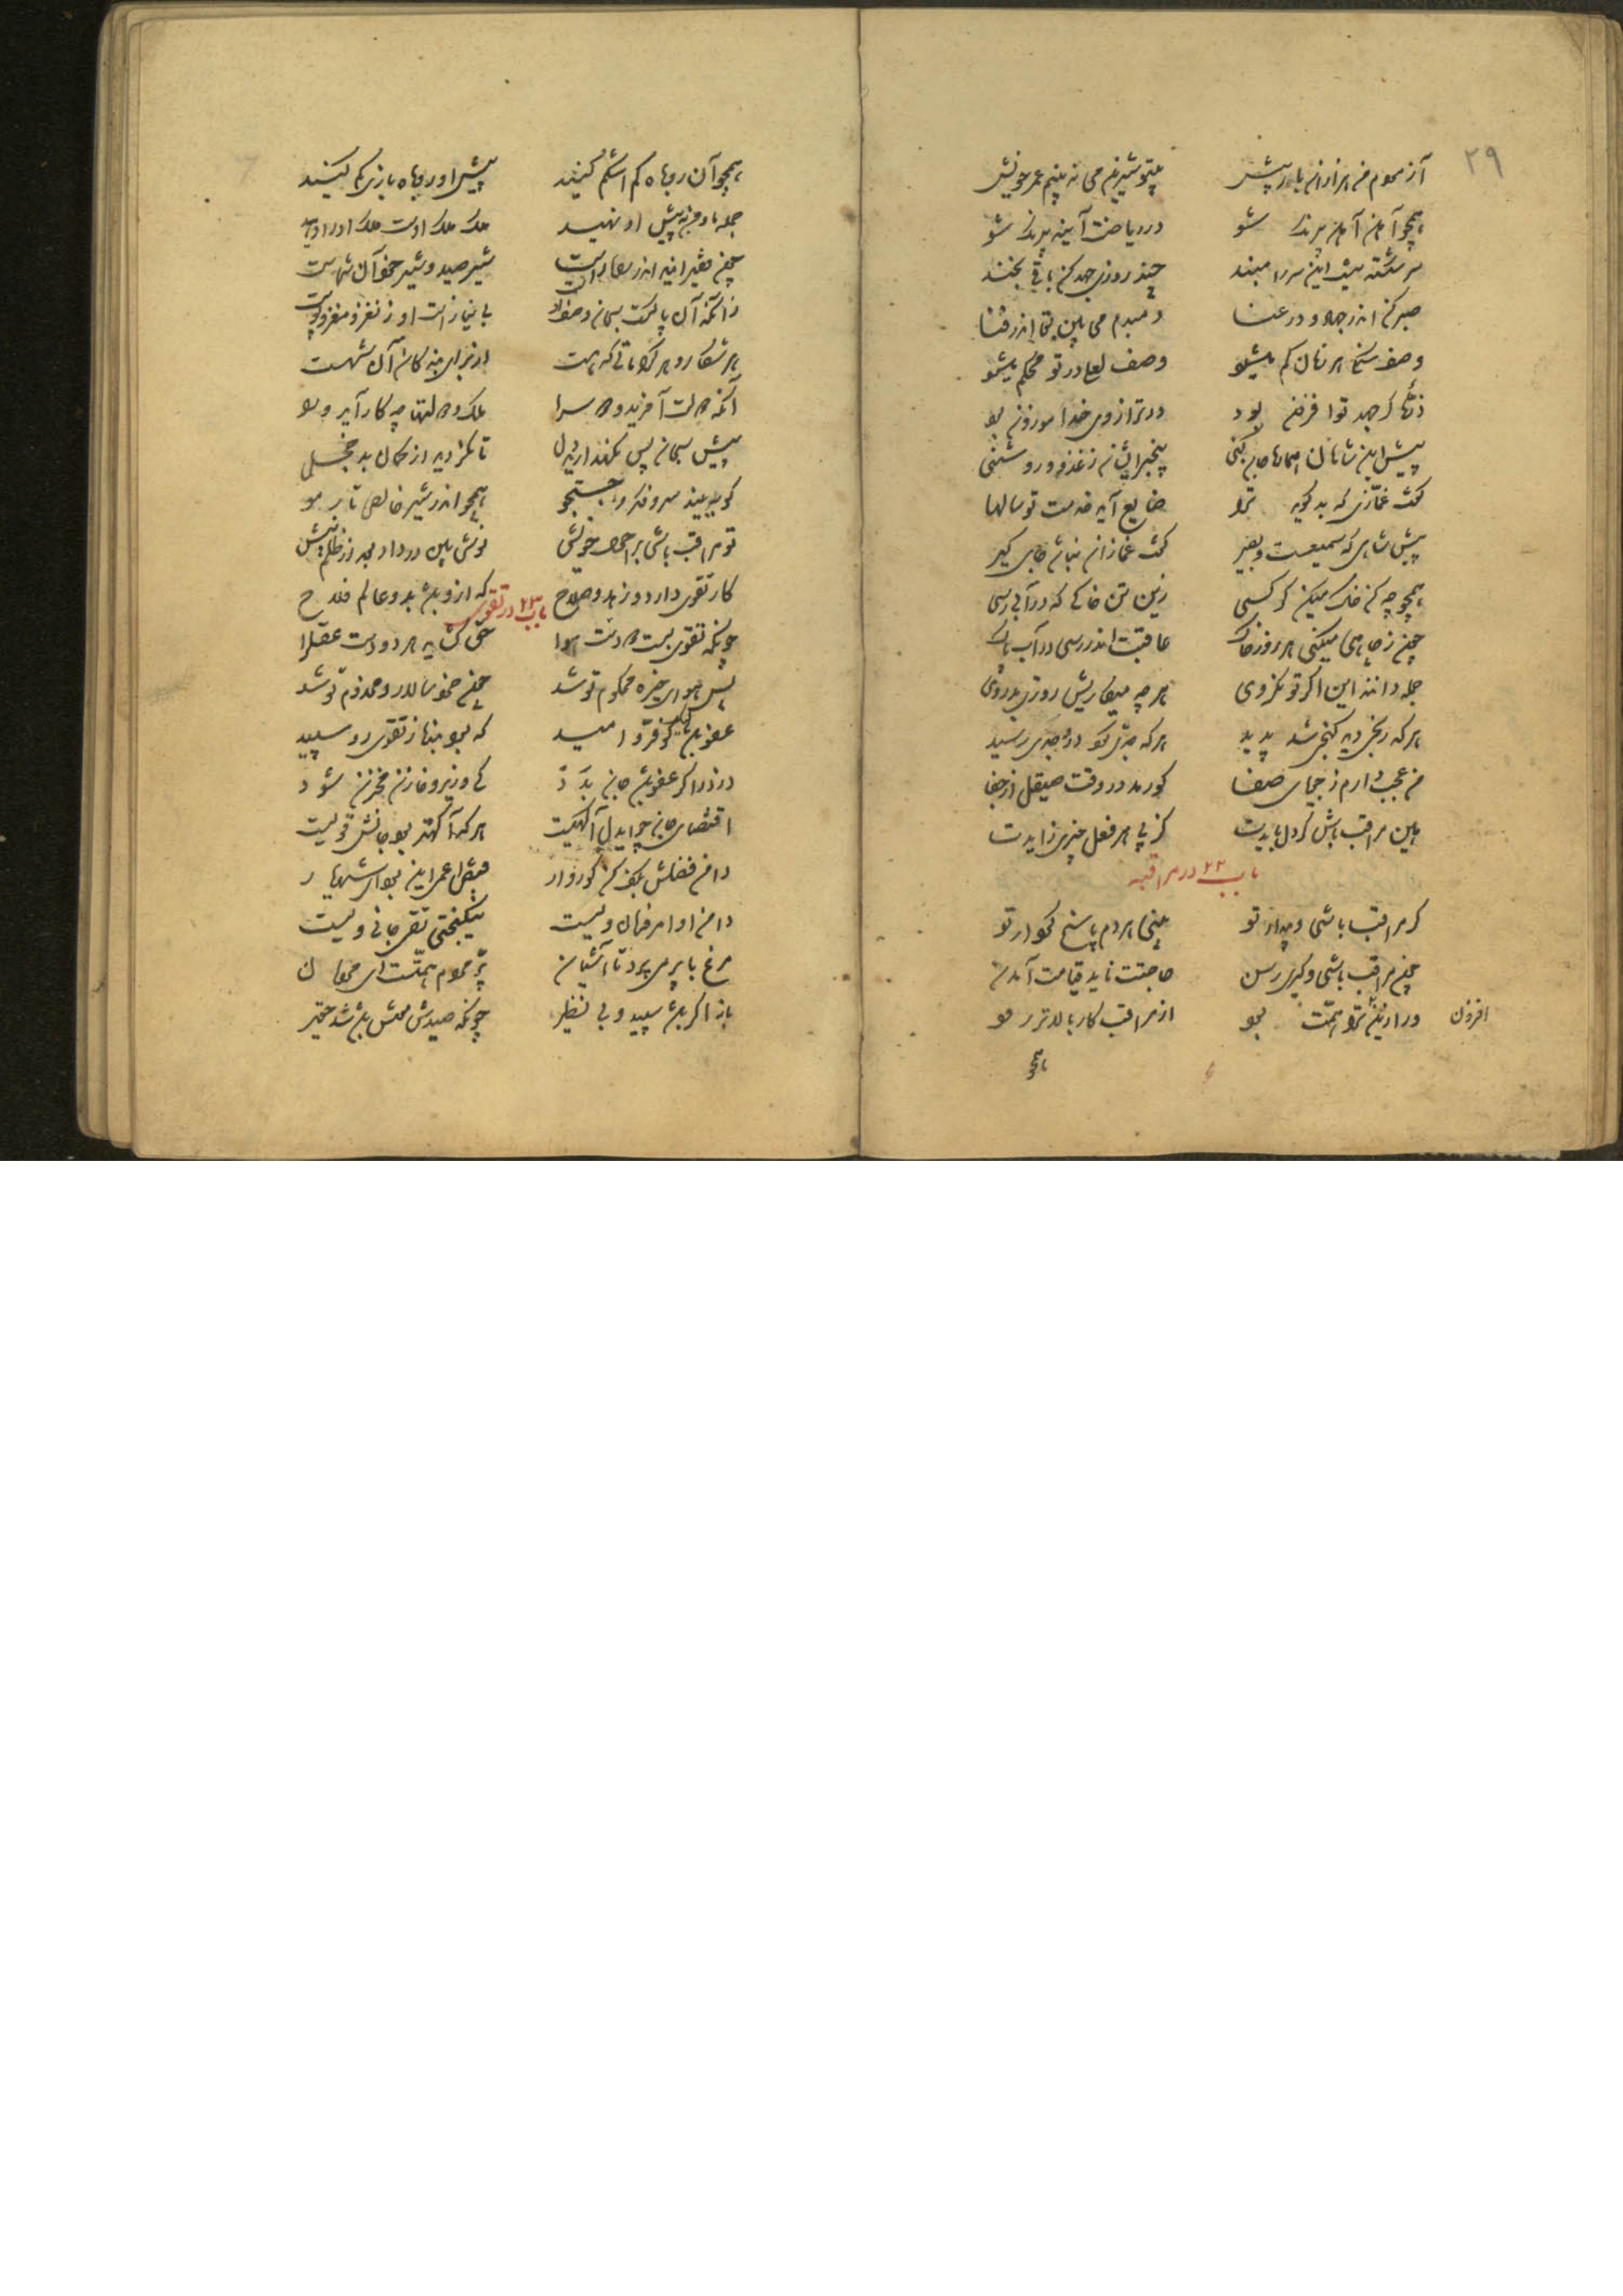 ۲۹
آزمودم من هزاران بار بیش بیتو شیرین می نبینم عمر خویش
همچو آهن ز آهنی بیرنگ شو در ریاضت آینه بیرنگ شو
سر شکسته نیست این سر را مبند چند روزی جهد کن باقی بخند
صبر کن اندر جهاد و در عنا دمبدم می بین بقا اندر فنا
وصف سنگی هر زمان کم میشود وصف لعلی در تو محکم میشود
ذره گر جهد تو افزون بود در ترازوی خدا موزون بود
پیش این شاهان هماره جان کنی بیخبر ایشان ز غدر و روشنی
گفت غمازی که بد گوید ترا ضایع آید خدمت تو سالها
پیش شاهی که سمیعست و بصیر گفت غمازان نباشد جای گیر
همچو چه کن خاک میکن گر کسی زین تن خاکی که در آبی رسی
چون ز چاهی میکنی هر روز خاک عاقبت اندر رسی در آب پاک
جمله دانند این اگر تو نگروی هر چه میکاریش روزی بدروی
هر که رنجی دید گنجی شد پدید هر که جدی کرد در جدی رسید
من عجب دارم ز جویای صفا کو رمد در وقت صیقل از جفا
هین مراقب باش گر دل بایدت کز پی هر فعل چیزی زایدت
باب ۲۲ در مراقبه
گر مراقب باشی و بیدار تو بینی هر دم پاسخ کردار تو
چون مراقب باشی و گیری رسن حاجتت ناید قیامت آمدن
ور ازین افزون ترا همت بود از مراقب کار بالاتر رود
همچو
همچو آن روباه کم اشکم کنید پیش او روباه بازی کم کنید
جمله ما و من به پیش او نهید ملک ملک اوست ملک او را دهید
چون فقیر آیید اندر راه راست شیر و صید شیر خود آن شماست
زانکه او پاکست و سبحان وصف اوست بی نیازست او ز نغز و مغز و پوست
هر شکار و هر کراماتی که هست از برای بندگان آن شهست
آنکه دولت آفرید و دو سرا ملک و دولتها چه کار آید ورا
پیش سبحان پس نگهدارید دل تا نگردید از گمان بد خجل
کو ببیند سر و فکر و جستجو همچو اندر شیر خالص تار مو
تو مراقب باشی بر احوال خویش نوش بین در داد و بعد از ظلم نیش
باب ۲۳ در تقوی
کار تقوی دارد و زهد و صلاح که ازو باشد بدو عالم فلاح
چونکه تقوی بست دو دست هوا حق گشاید هر دو دست عقل را
پس حواس چیره محکوم تو شد چون خرد سالار و مخدوم تو شد
عفو باشد لیک کو فر امید که بود بنده ز تقوی رو سپید
دزد را گر عفو باشد جان برد کی وزیر و خازن مخزن شود
اقتضای جان چو ایدل آگهیست هر که آگه تر بود جانش قویست
دامن فضلش بکف کن کوروار قبض اعمی این بود ای شهریار
دامن او امر و فرمان ویست نیکبختی که تقی جان ویست
مرغ با پر می پرد تا آشیان پر مردم همتست ای مردمان
باز اگر باشد سپید و بی نظیر چونکه صیدش موش باشد شد حقیر